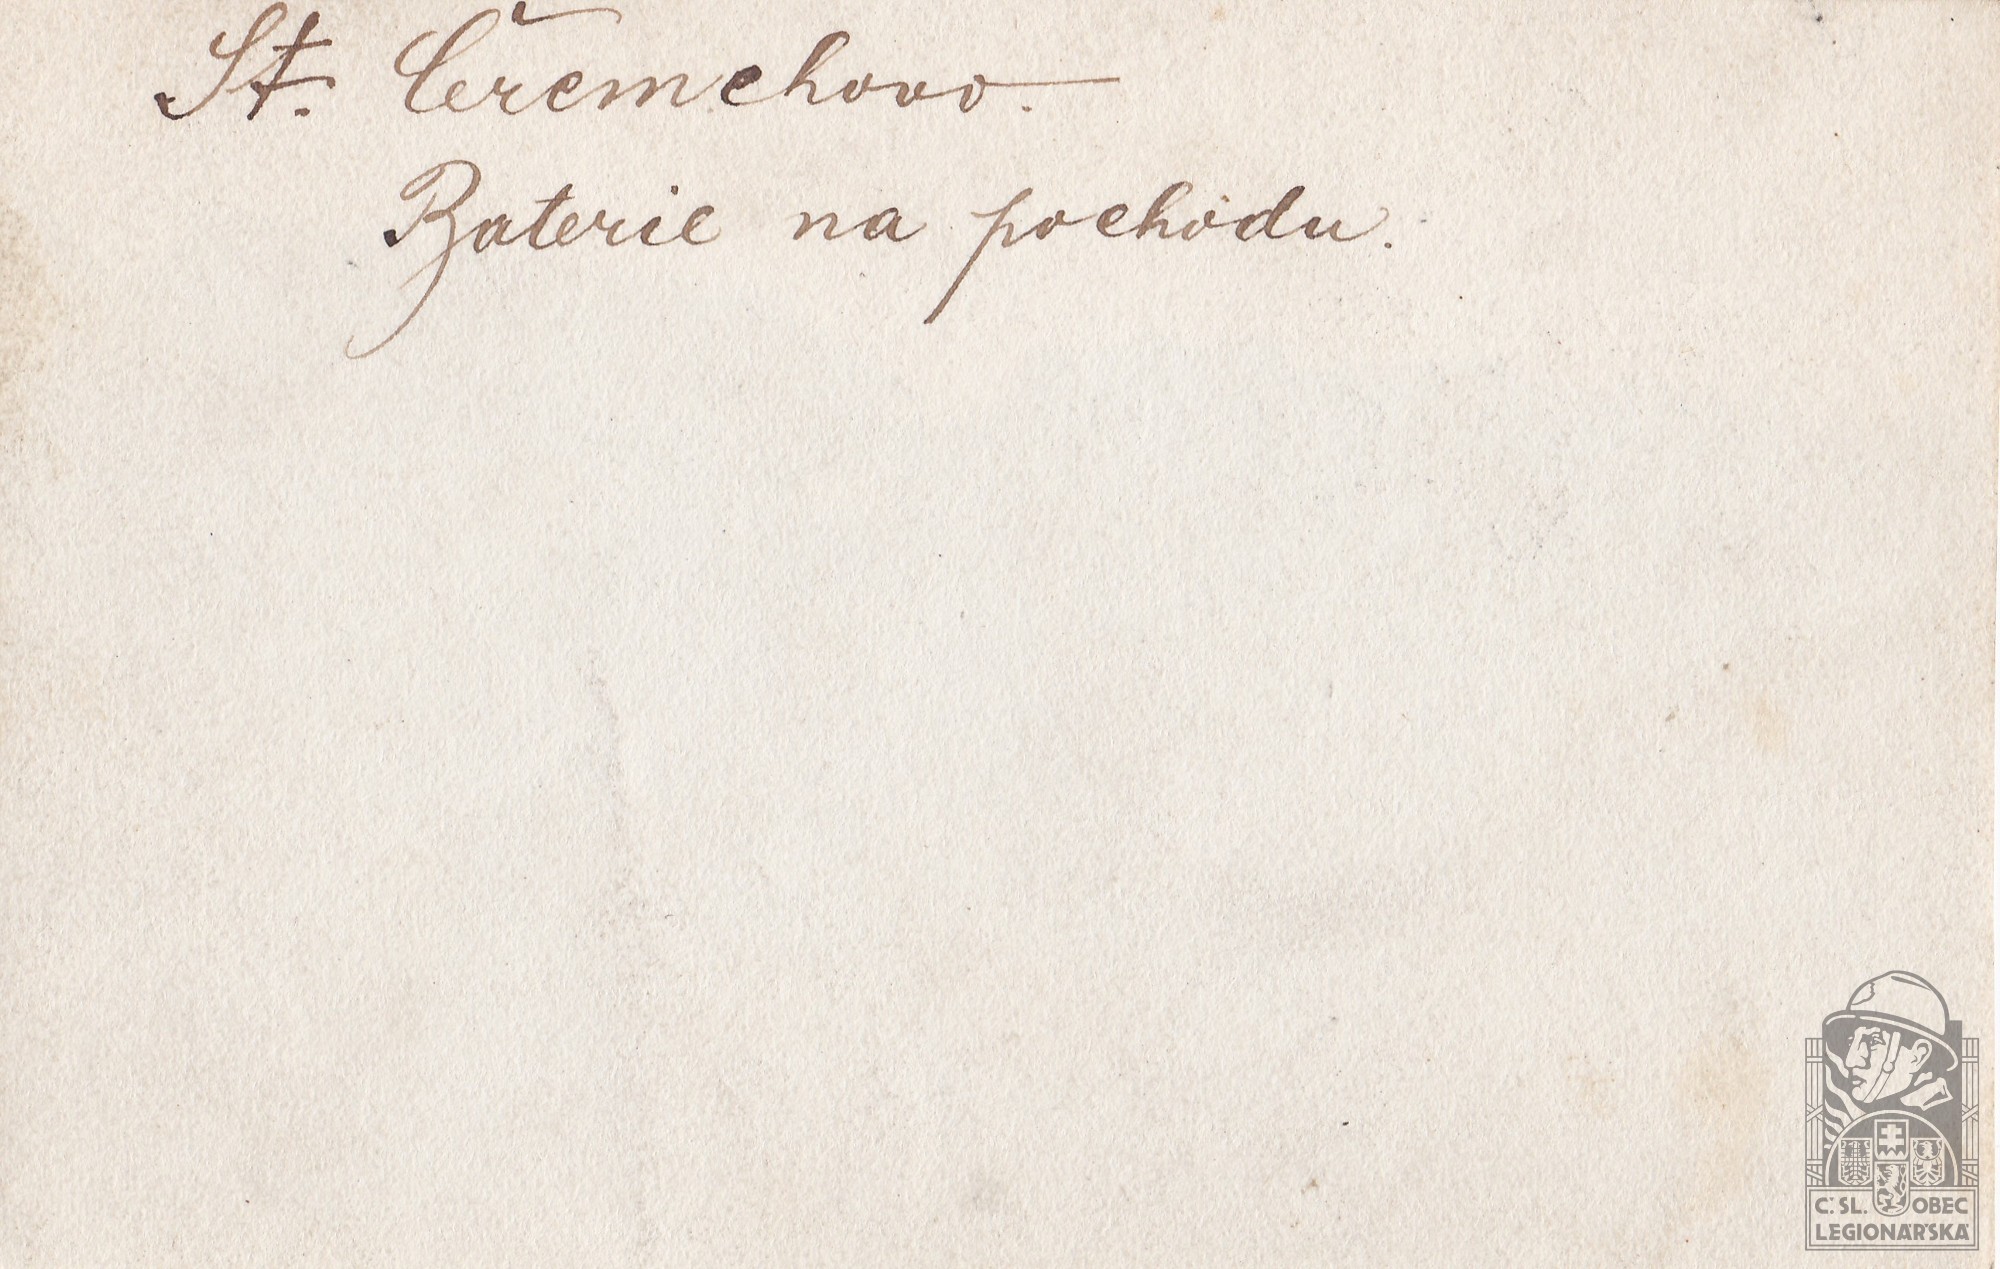 St. Čeremchovo.
Baterie na pochodu.
Č. SL. OBEC
LEGIONÁŘSKÁ